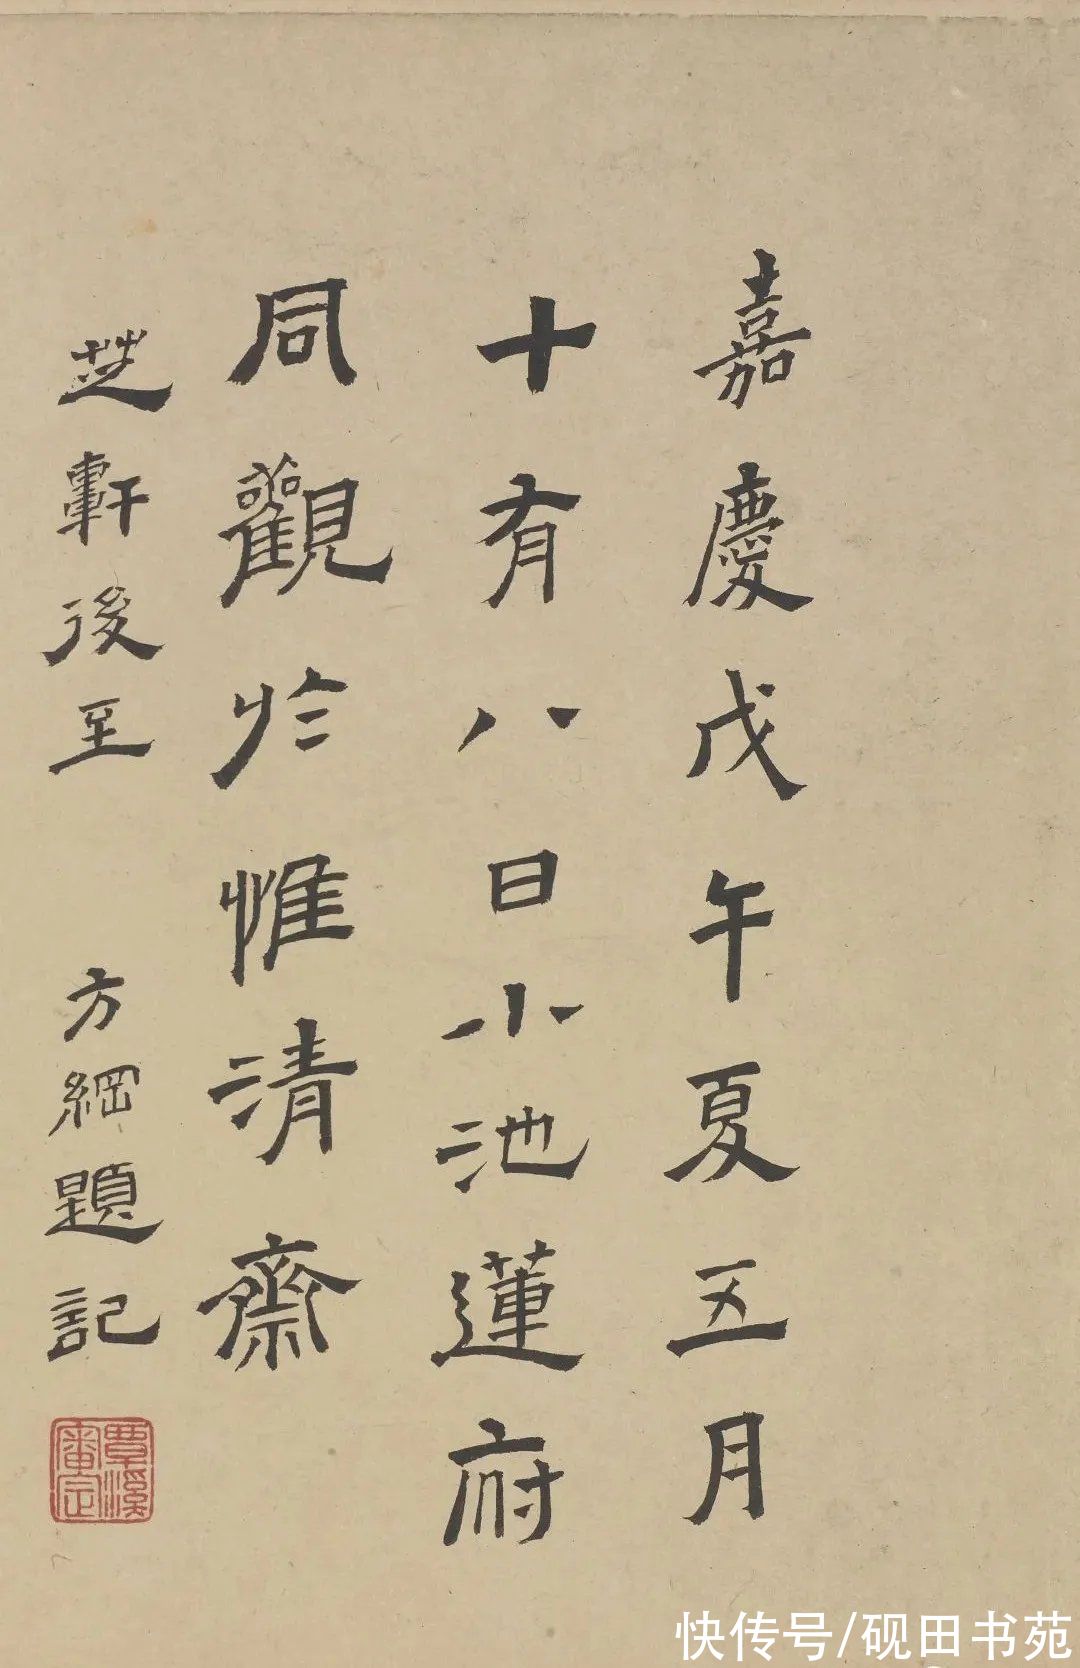 嘉慶戊午夏五月
十有八日小池蓮府
同觀於惟清齋
芝軒後至 方綱題記
覃溪審定
快传号/砚田书苑